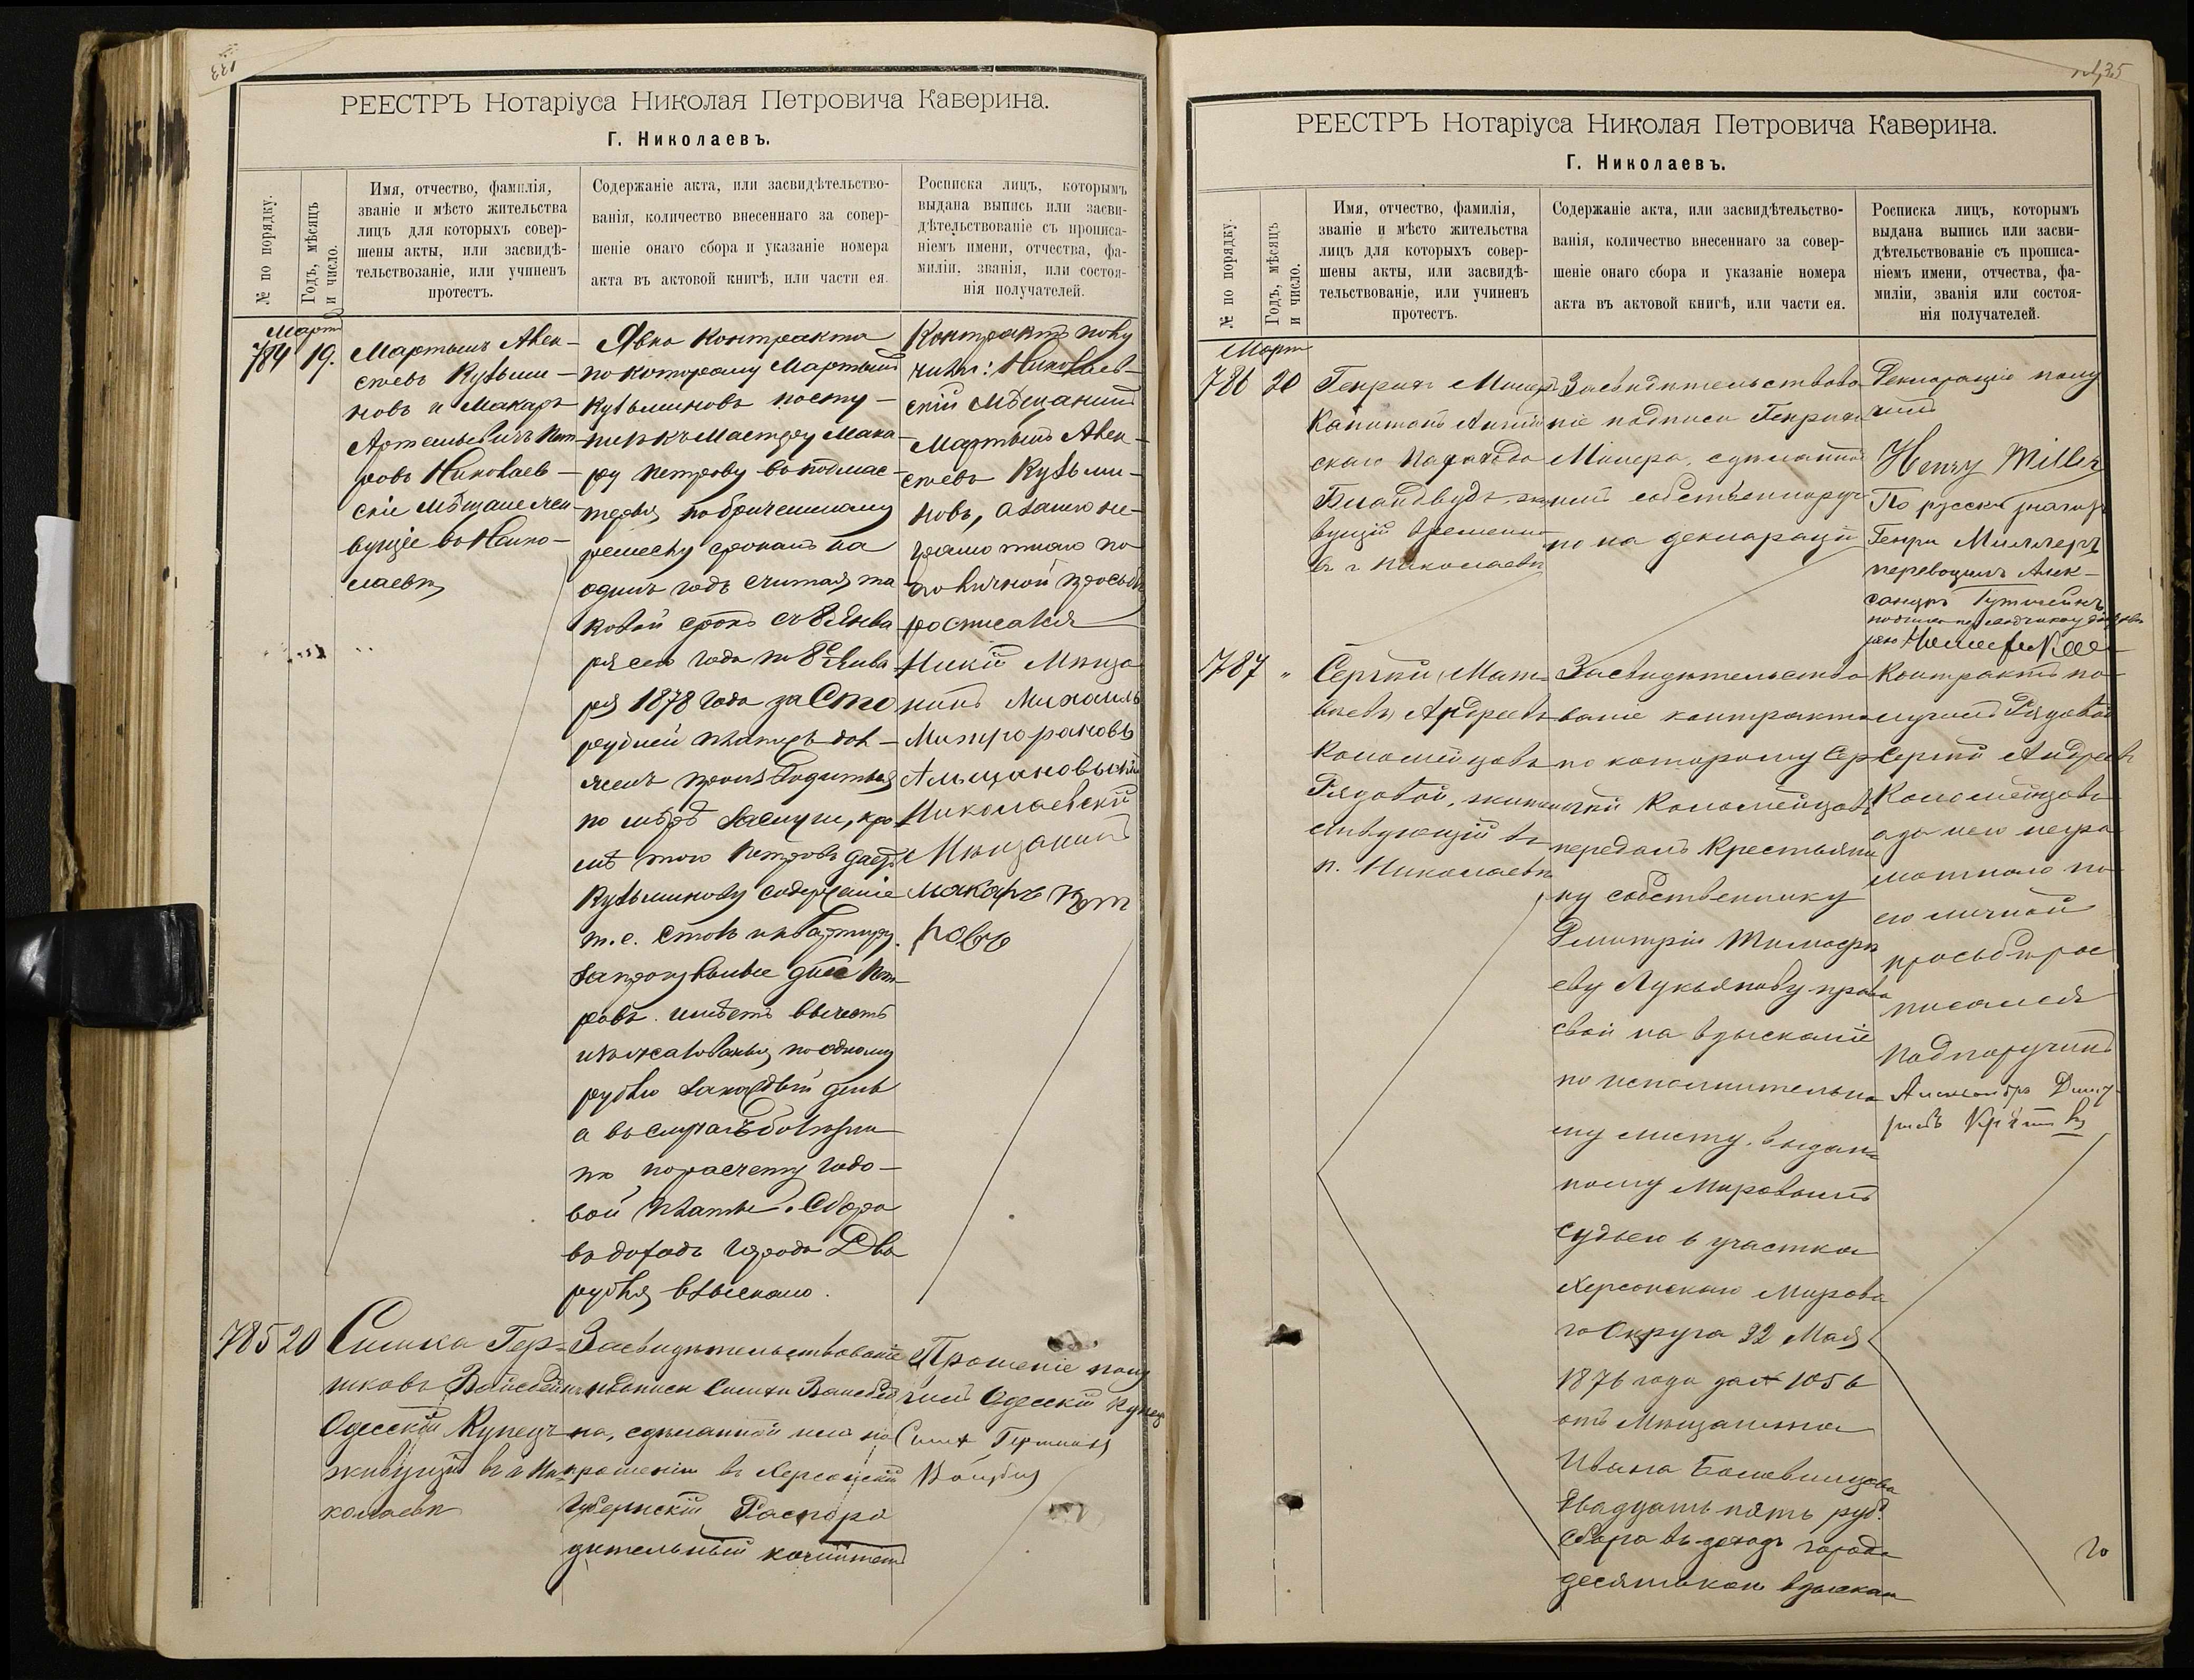 РЕЕСТРЪ Нотаріуса Николая Петровича Каверина.
Г. Николаевъ.
№ по порядку.
Годъ, мѣсяцъ
и число.
Имя, отчество, фамилія,
званіе и мѣсто жительства
лицъ для которыхъ совер-
шены акты, или засвидѣ-
тельствованіе, или учиненъ
протестъ.
Содержаніе акта, или засвидѣтельство-
ванія, количество внесеннаго за совер-
шеніе онаго сбора и указаніе номера
акта въ актовой книгѣ, или части ея.
Росписка лицъ, которымъ
выдана выпись или засви-
дѣтельствованіе съ прописа-
ніемъ имени, отчества, фа-
миліи, званія, или состоя-
нія получателей.
Мартъ
784 19.
Мартынъ Авек-
сѣевъ Кузьми-
новъ и Макаръ
Артемьевичъ Пет-
ровъ Николаев-
скіе мѣщане жи-
вущіе въ Нико-
лаевѣ
Явка контракта
по которому Мартынъ
Кузьминовъ посту-
пилъ къ мастеру Мака-
ру Петрову въ подмас-
терья по
ремеслу срокомъ на
одинъ годъ считая та-
ковой срокъ съ 8 Янва
ря сего года по 8е Янва
ря 1878 года за Сто
рублей платежъ дол-
женъ производиться
по мѣрѣ заслуги, кро
мѣ того Петровъ даетъ
Кузьминову содержаніе
т. е. столъ и квартиру.
за прогульные дни Пет-
ровъ имѣетъ вычесть
изъ жалованья по одному
рублю за каждый день
а въ случаѣ болѣзни
то по расчету годо-
вой платы. Сбора
въ доходъ города Два
рубля взыскано.
Контрактъ полу
чили: Николаев-
скій мѣщанинъ
Мартынъ Алек-
сѣевъ Кузьми-
новъ, а за него не-
грамотнаго по
его личной просьбѣ
росписался
Михаилъ
Митрофановъ
Николаевскій
Мѣщанинъ
Макаръ Пет
ровъ
785 20
Симха Гер-
шковъ Вайсбейнъ
Одесскій Купецъ
живущій въ г. Ни-
колаевѣ
Засвидѣтельствованіе
подписи Симхи Вайсбей
на, сдѣланной имъ на
прошеніи въ Херсонскій
Губернскій Распоря
дительный комитетъ
Прошеніе полу
чилъ Одесскій Купецъ
РЕЕСТРЪ Нотаріуса Николая Петровича Каверина.
Г. Николаевъ.
№ по порядку.
Годъ, мѣсяцъ
и число.
Имя, отчество, фамилія,
званіе и мѣсто жительства
лицъ для которыхъ совер-
шены акты, или засвидѣ-
тельствованіе, или учиненъ
протестъ.
Содержаніе акта, или засвидѣтельство-
ванія, количество внесеннаго за совер-
шеніе онаго сбора и указаніе номера
акта въ актовой книгѣ, или части ея.
Росписка лицъ, которымъ
выдана выпись или засви-
дѣтельствованіе съ прописа-
ніемъ имени, отчества, фа-
миліи, званія или состоя-
нія получателей.
Мартъ
786 20
Генрихъ Милеръ
Капитанъ Англій
скаго Парохода
жи
вущій временно
въ г. Николаевѣ
Засвидѣтельствова
ніе подписи Генриха
Милера, сдѣланной
имъ собственноруч
но на деклараціи
Декларацію полу
чилъ
Henry Miller
По русски значитъ
Генри Миллеръ
переводилъ Алек-
сандръ
787 "
Сергѣй Мат-
вѣевъ Андреевъ
Коломейцовъ
Рядовой, житель
ствующій въ
г. Николаевѣ
Засвидѣтельство
ваніе контракта
по которому Сер
гѣй Коломейцовъ
передалъ Крестьяни
ну собственнику
Дмитрію Тимофѣ
еву Лукьянову права
свои на взысканіе
по исполнительно
му листу, выдан
ному Мировымъ
Судьею 6 участка
Херсонскаго Мирова
го Округа 22 Мая
1876 года за № 1056
отъ Мѣщанина
Ивана
двадцать пять руб.
Сбора въ доходъ города
десять коп. взыскан
Контрактъ по-
лучилъ Рядовой
Сергѣй Андреевъ
Коломейцовъ
а за него негра
мотнаго по
его личной
просьбѣ рос
писался
Подпоручикъ
Александръ